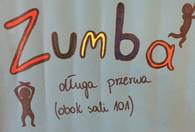 Zumba
długa przerwa
(obok sali 101)